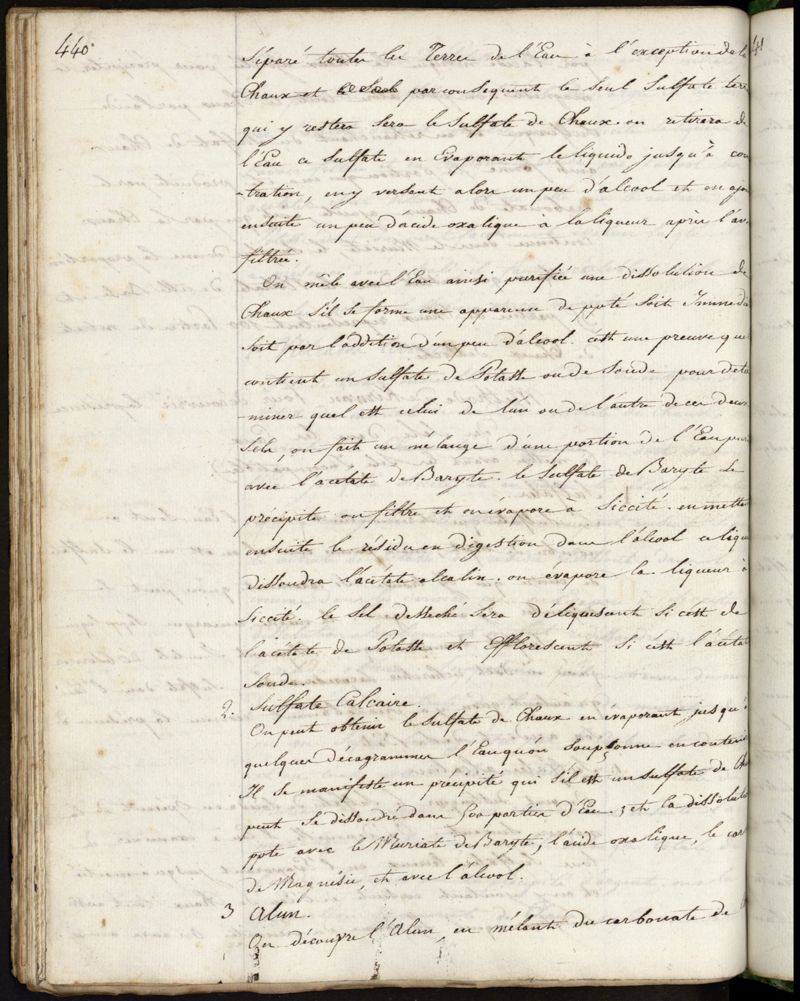 440.
Séparé toutes les Terres de l'Eau à l'exception de la
Chaux et par consequent le seul Sulfate terr
qui y restera sera le Sulfate de Chaux. on retirera de
l'Eau ce sulfate en Evaporant le liquide jusqu'à con
-tration, en y versant alors un peu d'alcool et on ajou
ensuite un peu d'acide oxalique à la liqueur après l'av
filtrée.
On mêle avec l'Eau ainsi purifiée une dissolution de
Chaux s'il se forme une apparence de ppté soit Immedia
soit par l'addition d'un peu d'alcool. c'est une preuve que
contient un sulfate de Potasse ou de Soude pour deter
-miner quel est celui de l'un ou de l'autre de ces deux
Sels, on fait un mélange d'une portion de l'Eau pu
avec l'acetate de Baryte. le Sulfate de Baryte se
précipite on filtre et on évapore à Siccité. en mettan
ensuite le résidu en digestion dans l'alcool ce liqui
dissoudra l'acétate alcalin. on évapore la liqueur à
Siccité. le Sel desseché sera déliquescent si c'est de
l'acétate de Potasse et Efflorescent si c'est l'acetat
Soude.
2. Sulfate Calcaire.
On peut obtenir le Sulfate de Chaux en évaporant jusqu'à
quelques décagrammes l'Eau qu'on soupçonne en conteni
Il se manifeste un précipité qui s'il est un sulfate de Cha
peut se dissoudre dans 500 parties d'Eau, et la dissoluti
ppte avec le Muriate de Baryte, l'acide oxalique, le car
de Magnésie, et avec l'alcool.
3 Alun.
On découvre l'Alun en mêlant du carbonate de